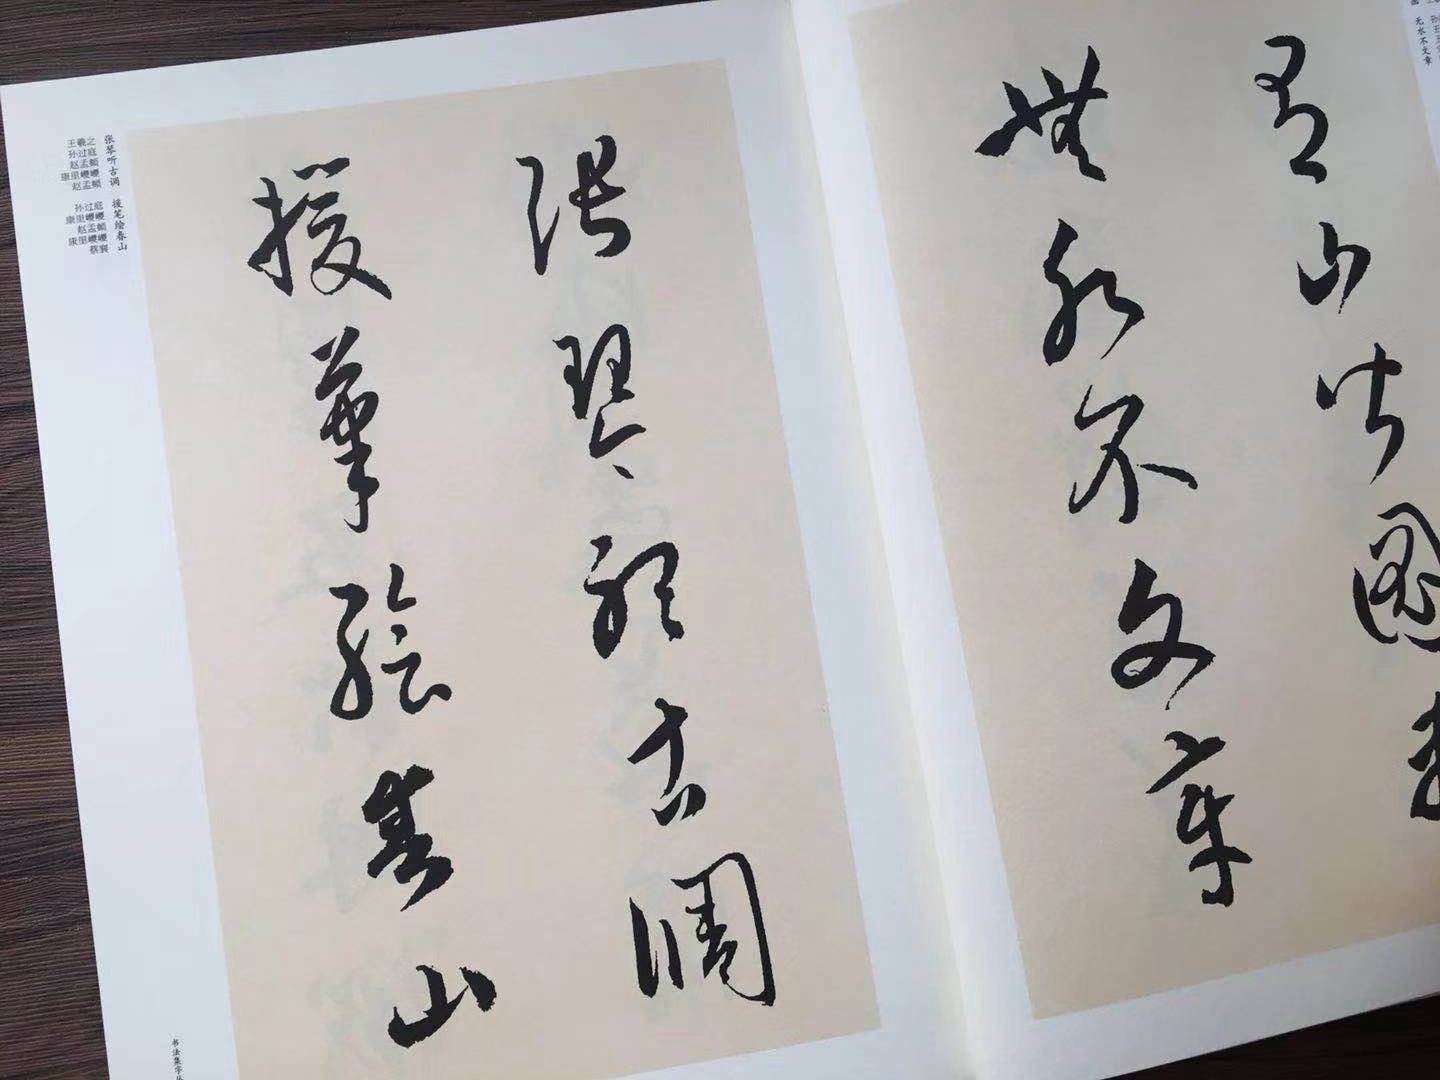 无水不文章
有山皆圖
無水不文章
張琴聽古調
援筆繪春山
张琴听古调 援笔绘春山
王羲之
孙过庭
赵孟頫
康里巎巎
赵孟頫
孙过庭
康里巎巎
赵孟頫
康里巎巎
蔡襄
书法集字